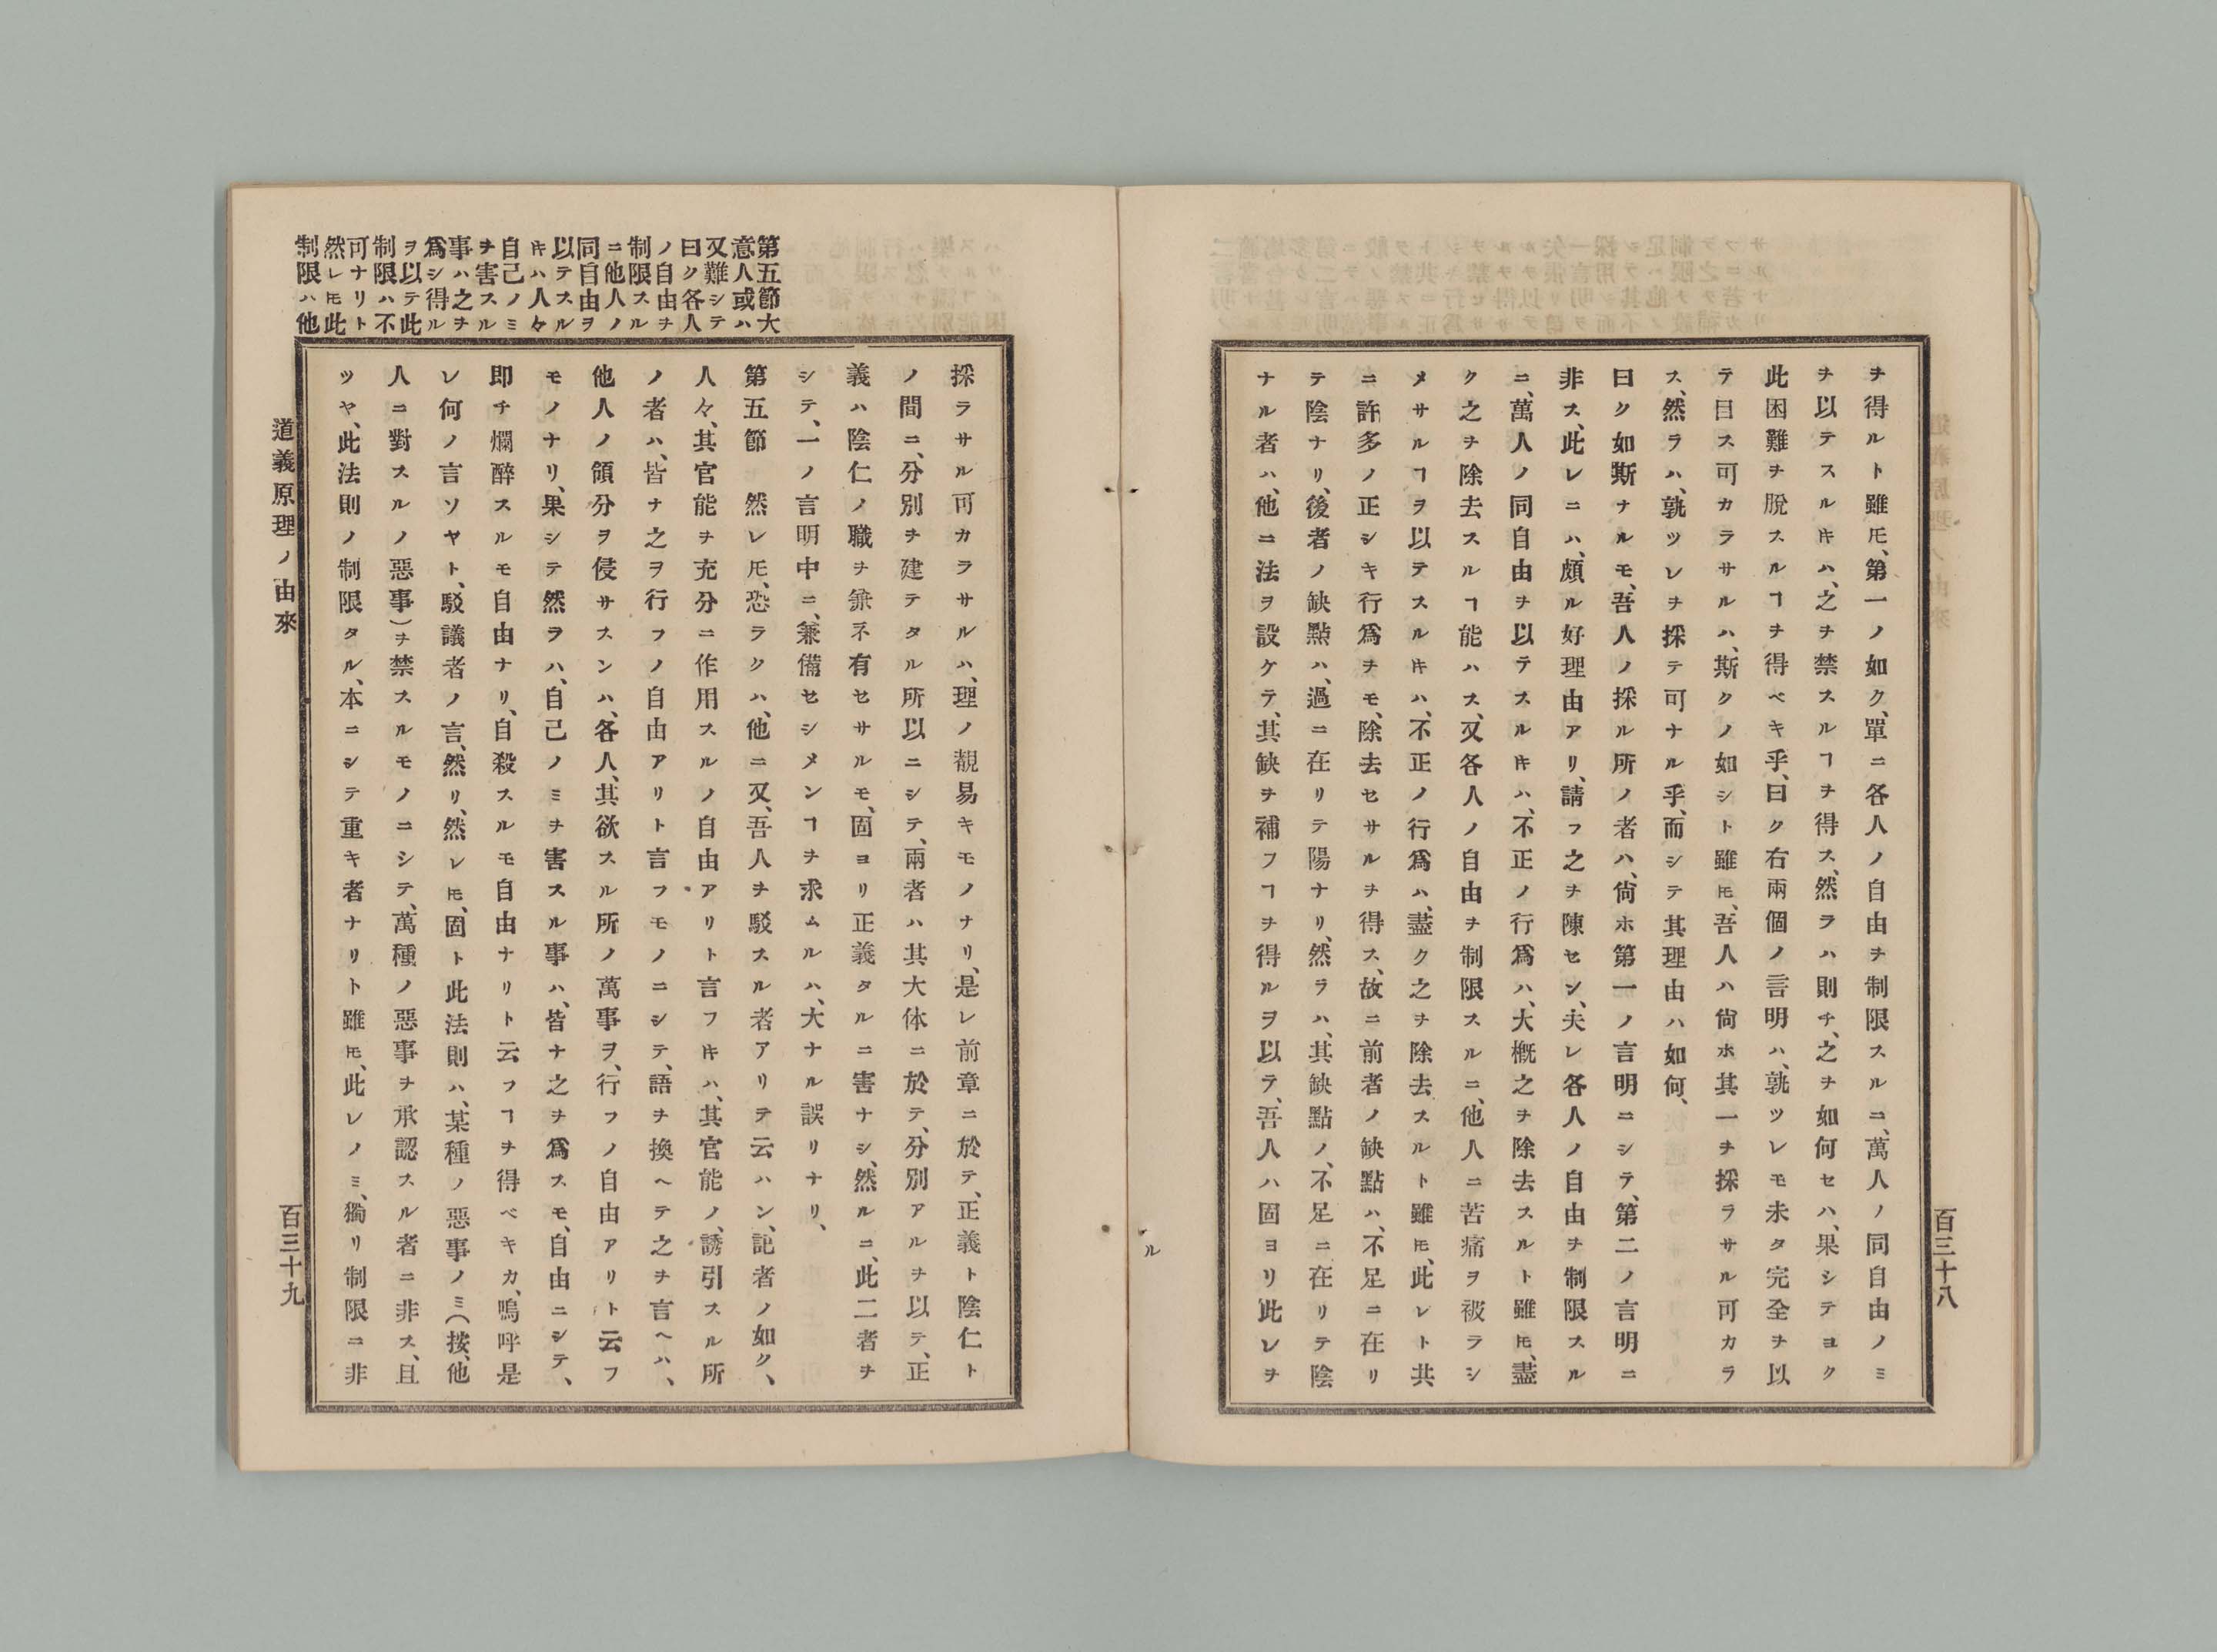 百三十八
ヲ得ルト雖𪜈、第一ノ如ク、單ニ各人ノ自由ヲ制限スルニ、萬人ノ同自由ノミ
ヲ以テスルキハ、之ヲ禁スルヿヲ得ス、然ラハ則チ、之ヲ如何セハ、果シテヨク
此困難ヲ脫スルヿヲ得ベキ乎、曰ク右兩個ノ言明ハ、孰ツレモ未タ完全ヲ以
テ目ス可カラサルハ、斯クノ如シト雖𪜈、吾人ハ尙ホ其一ヲ採ラサル可カラ
ス、然ラハ、孰ツレヲ採テ可ナル乎、而シテ其理由ハ如何、
曰ク如斯ナルモ、吾人ノ採ル所ノ者ハ、尙ホ第一ノ言明ニシテ、第二ノ言明ニ
非ス、此レニハ、頗ル好理由アリ、請フ之ヲ陳セン、夫レ各人ノ自由ヲ制限スル
ニ、萬人ノ同自由ヲ以テスルキハ、不正ノ行爲ハ、大概之ヲ除去スルト雖𪜈、盡
ク之ヲ除去スルヿ能ハス、又各人ノ自由ヲ制限スルニ、他人ニ苦痛ヲ被ラシ
メサルヿヲ以テスルキハ、不正ノ行爲ハ、盡ク之ヲ除去スルト雖𪜈、此レト共
ニ許多ノ正シキ行爲ヲモ、除去セサルヲ得ス、故ニ前者ノ缺點ハ、不足ニ在リ
テ陰ナリ、後者ノ缺點ハ、過ニ在リテ陽ナリ、然ラハ、其缺點ノ、不足ニ在リテ陰
ナル者ハ、他ニ法ヲ設ケテ、其缺ヲ補フヿヲ得ルヲ以テ、吾人ハ固ヨリ此レヲ
ル
第五節大
意人或ハ
又難シテ
曰ク各人
ノ自由ヲ
制限スル
ニ他人ノ
同自由ヲ
以テスル
キハ人々
自己ノミ
ヲ害スル
事ハ之ヲ
爲シ得ル
ヲ以テ此
制限ハ不
可ナリト
然レ𪜈此
制限ハ他
採ラサル可カラサルハ、理ノ覩易キモノナリ、是レ前章ニ於テ、正義ト陰仁ト
ノ間ニ、分別ヲ建テタル所以ニシテ、兩者ハ其大体ニ於テ、分別アルヲ以テ、正
義ハ陰仁ノ職ヲ兼不有セサルモ、固ヨリ正義タルニ害ナシ、然ルニ、此二者ヲ
シテ、一ノ言明中ニ、兼備セシメンヿヲ求ムルハ、大ナル誤リナリ、
第五節　然レ𪜈、恐ラクハ、他ニ又、吾人ヲ駁スル者アリテ云ハン、記者ノ如ク、
人々、其官能ヲ充分ニ作用スルノ自由アリト言フキハ、其官能ノ、誘引スル所
ノ者ハ、皆ナ之ヲ行フノ自由アリト言フモノニシテ、語ヲ換ヘテ之ヲ言ヘハ、
他人ノ領分ヲ侵サスンハ、各人、其欲スル所ノ萬事ヲ、行フノ自由アリト云フ
モノナリ、果シテ然ラハ、自己ノミヲ害スル事ハ、皆ナ之ヲ爲スモ、自由ニシテ、
即チ爛醉スルモ自由ナリ、自殺スルモ自由ナリト云フヿヲ得ベキカ、嗚呼是
レ何ノ言ソヤト、駁議者ノ言、然リ、然レ𪜈、固ト此法則ハ、某種ノ惡事ノミ（按、他
人ニ對スルノ惡事）ヲ禁スルモノニシテ、萬種ノ惡事ヲ承認スル者ニ非ス、且
ツヤ、此法則ノ制限タル、本ニシテ重キ者ナリト雖𪜈、此レノミ、獨リ制限ニ非
道義原理ノ由來
百三十九